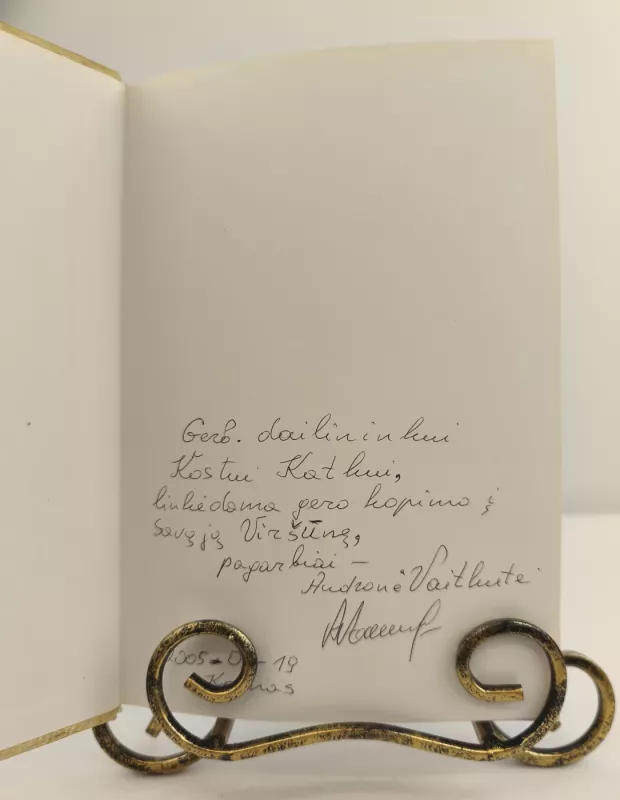 Gerb. dailininkui
Kostui Katkui,
linkėdama gero kopimo į
savąją Viršūnę,
pagarbiai –
Audronė Vaitkutė
2005-0 -19